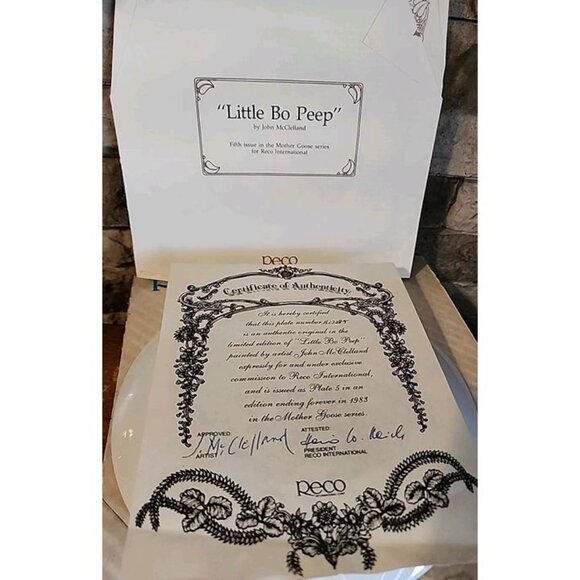 "Little Bo Peep"
by John McClelland
Fifth issue in the Mother Goose series
for Reco International
Reco
Certificate of Authenticity
It is hereby certified
that this plate number
is an authentic original in the
limited edition of "Little Bo Peep"
painted by artist John McClelland
expressly for and under exclusive
commission to Reco International,
and is issued as Plate 5 in an
edition ending forever in 1983
in the Mother Goose series.
APPROVED ATTESTED
J McClelland
ARTIST PRESIDENT
RECO INTERNATIONAL
Reco